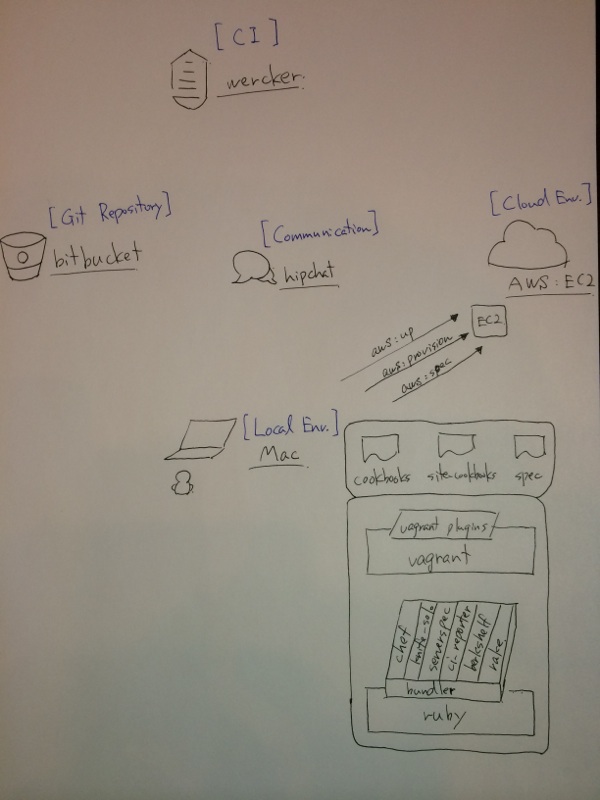 [CI]
wercker
[Git Repository]
bitbucket
[Communication]
hipchat
[Cloud Env.]
AWS:EC2
EC2
aws:up
aws:provision
aws:spec
[Local Env.]
Mac
cookbooks
site-cookbooks
spec
vagrant plugins
vagrant
chef
knife-solo
serverspec
ci-reporter
berkshelf
rake
bundler
ruby